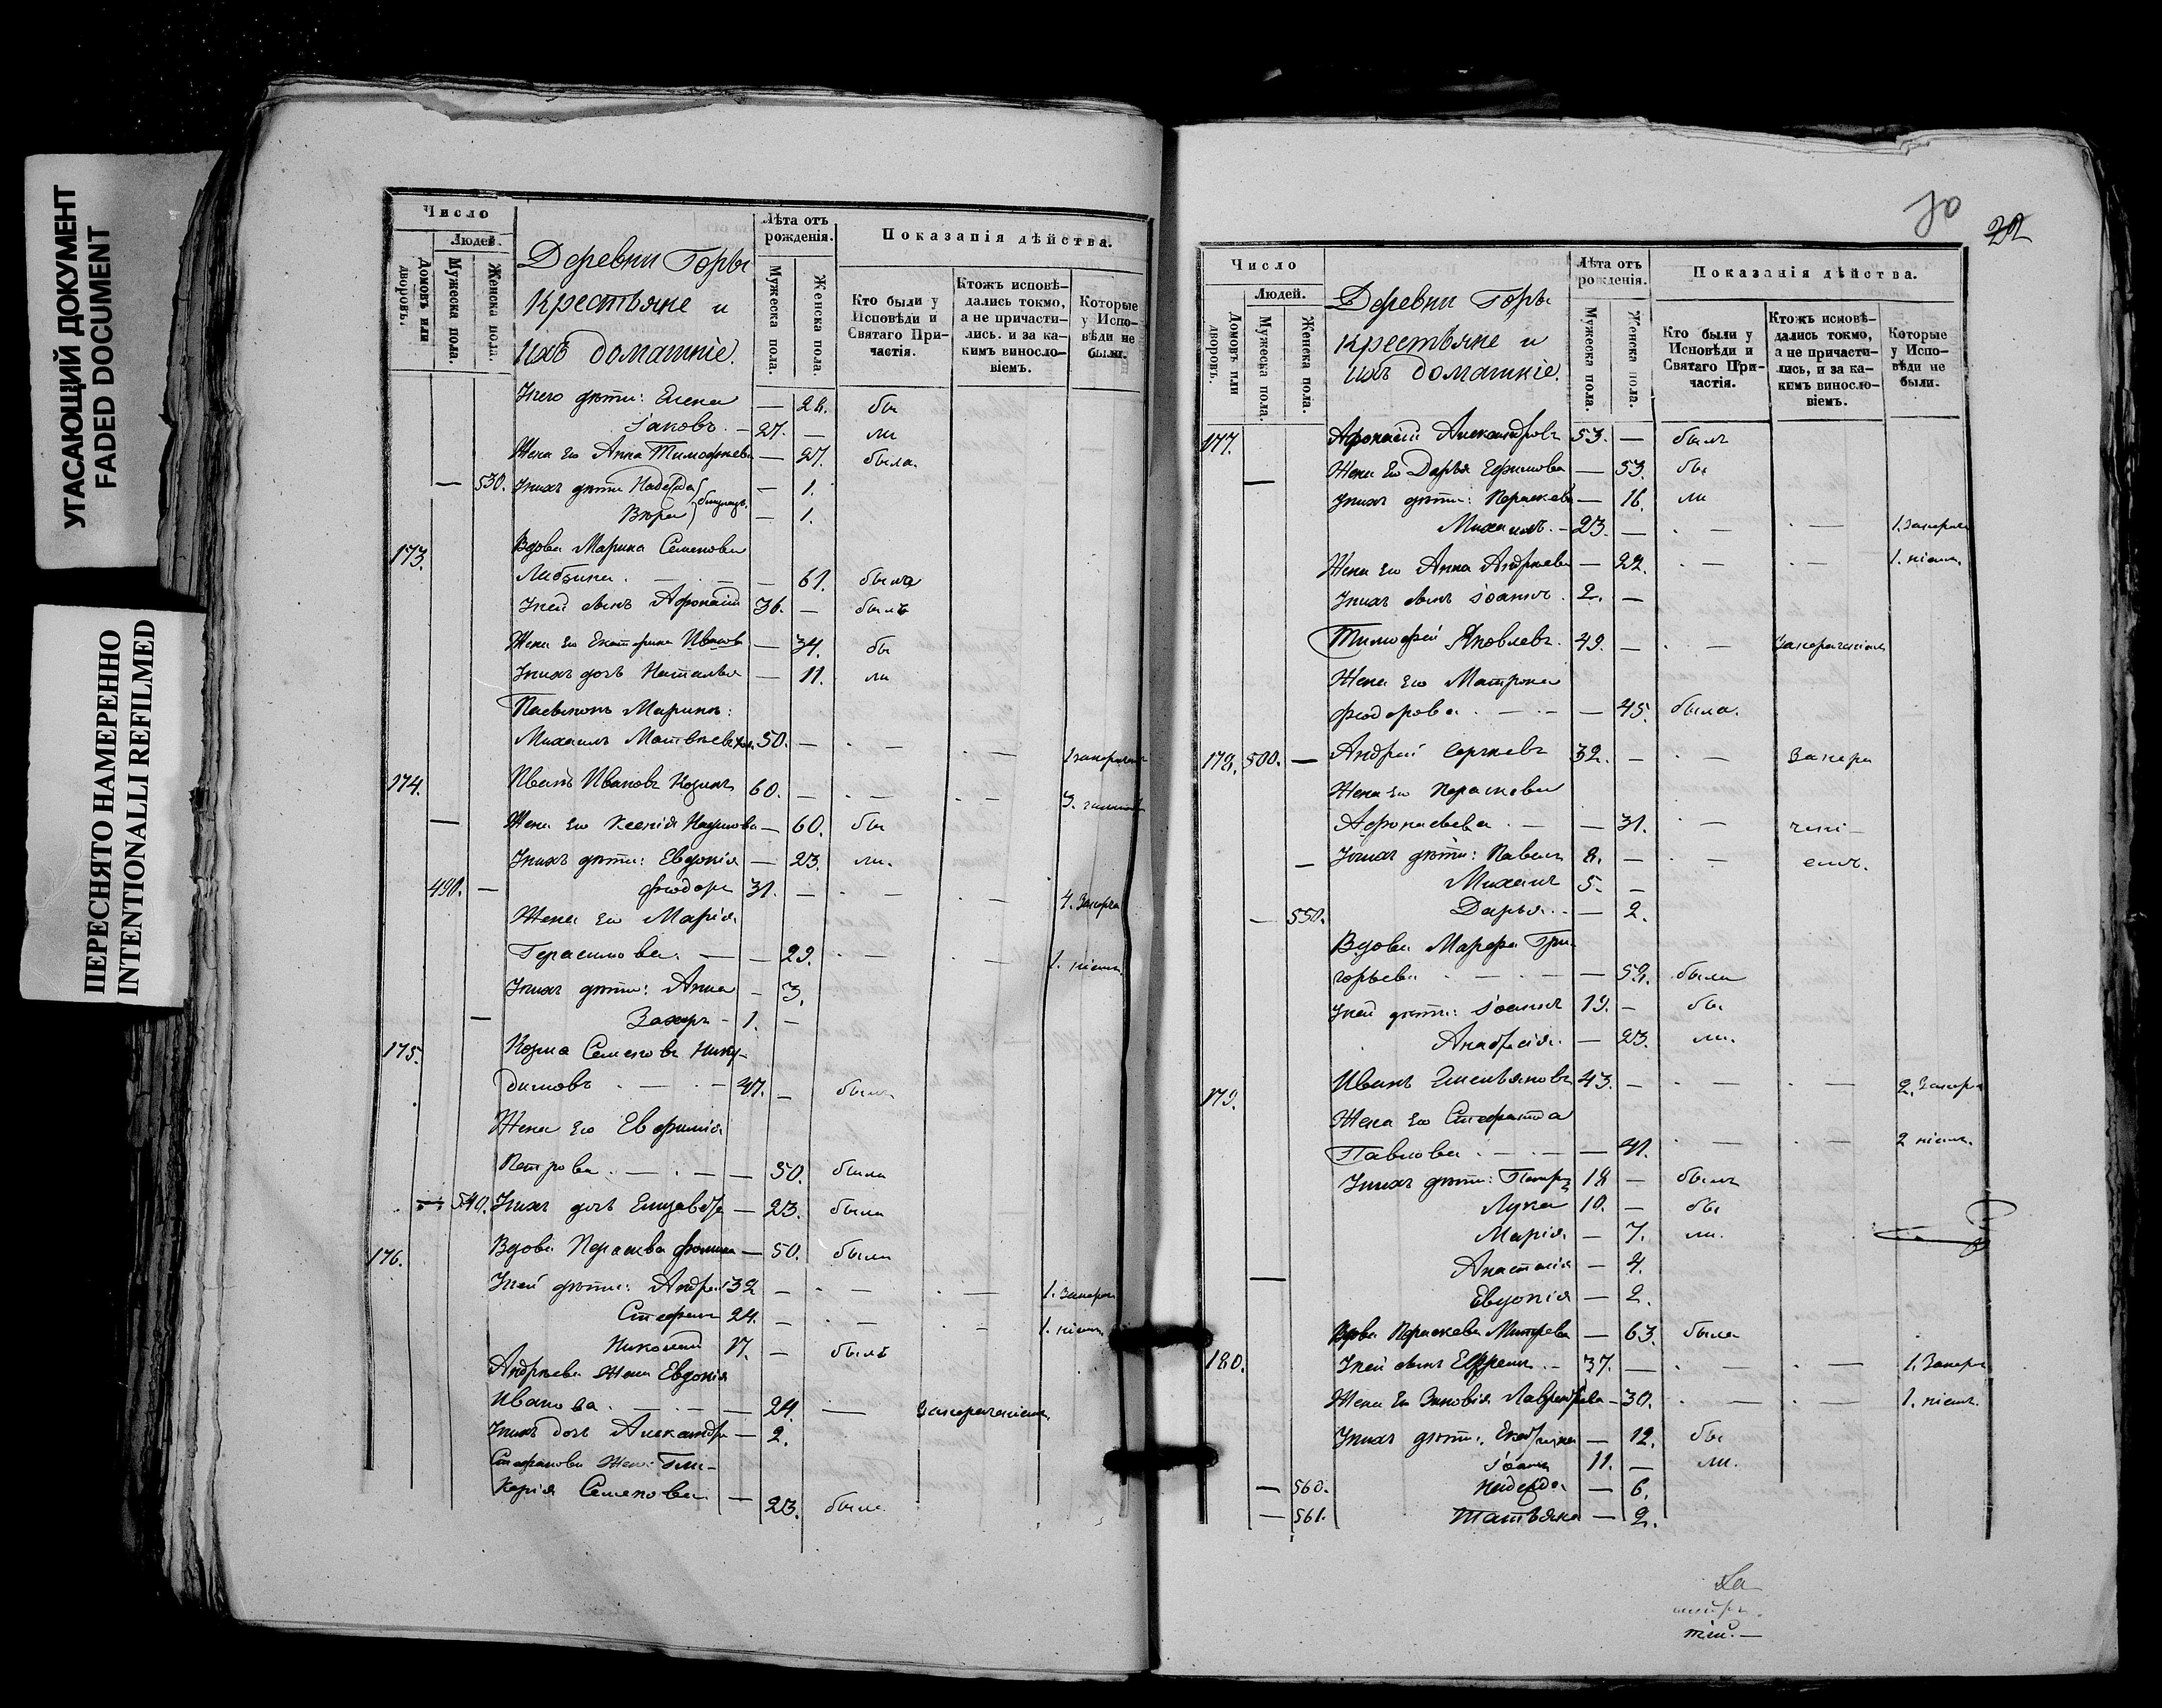 УГАСАЮЩИЙ ДОКУМЕНТ
FADED DOCUMENT
ПЕРЕСНЯТО НАМЕРЕННО
INTENTIONALLI REFILMED
Число
Людей.
Домовъ или дворовъ.
Мужеска пола.
Женска пола.
Деревни Горы
Крестьяне и
ихъ домашніе.
Лѣта отъ рожденія.
Мужеска пола.
Женска пола.
Показанія дѣйства.
Кто были у Исповѣди и Святаго Причастія.
Ктожъ исповѣдались токмо, а не причастились. и за какимъ винословіемъ.
Которые у Исповѣди не были.
У него дѣти: Елена — 28. бы
Іаковъ. — 27. — ли
Жена его Анна Тимофѣева — 27. была.
— 530. У нихъ дѣти Надежда — 1.
Вѣра — 1.
173. Вдова Марина Семенова
— 61. была
У ней сынъ Афонасій 36. — былъ
Жена его Екатерина Иванова — 34. бы
У нихъ дочь Наталья — 11. ли
Пасынокъ Марины:
Михаилъ Матвѣевъ 50. —
174. Иванъ Ивановъ 60. —
— Жена его Ксенія Наумова — 60. бы
У нихъ дѣти: Евдокія — 23. ли.
490. — Феодоръ 31. —
Жена его Марія
Герасимова. — — 29.
У нихъ дѣти: Анна — 3.
— Захаръ — 1. —
175. Козма Семеновъ Нику-
димовъ — 47. — былъ
Жена его Евфимія
Петрова. — — 50. была
540. У нихъ дочь Елизавета — 23. была
176. Вдова Параскева Фомина — 50. была
У ней дѣти: Андрей 32 —
Стефанъ 24. —
Николай 17. — былъ
Андреева жена Евдокія
Иванова. — 24. — занераченіемъ.
У нихъ дочь Александра — 2.
Стефанова жена Гли-
керія Семенова — 23. была
70
22
Число
Людей.
Домовъ или дворовъ.
Мужеска пола.
Женска пола.
Деревни Горы
крестьяне и
ихъ домашніе.
Лѣта отъ рожденія.
Мужеска пола.
Женска пола.
Показанія дѣйства.
Кто были у Исповѣди и Святаго Причастія.
Ктожъ исповѣдались токмо, а не причастились, и за какимъ винословіемъ.
Которые у Исповѣди не были.
177. Афонасій Александровъ 53. — былъ
— Жена его Дарья Ефимова — 53. бы
У нихъ дѣти: Параскева — 16. ли
Михаилъ. — 23. — 1. занера
Жена его Анна Андреева — 22. 1. ніемъ.
У нихъ сынъ Іоаннъ. 2. —
Тимофей Яковлевъ. 49. — занераченіемъ
Жена его Матрона
Феодорова — 45. была.
178. 500. — Андрей Сергѣевъ 32. — Занера
Жена его Параскева
Афонасьева — 31. чені-
— У нихъ дѣти: Павелъ 8. — емъ.
Михаилъ 5. —
— 550. Дарья. — 2.
Вдова Марфа Гри-
горьева — 52. была
У ней дѣти: Іоаннъ 19. — бы
— 23. ли.
179. Иванъ Емельяновъ 43. — 2. Занера
Жена его Стефанида
Павлова — 41. 2 ніемъ.
У нихъ дѣти: Петръ 18 — былъ
Лука 10. — бы
Марія — 7. ли.
Анастасія — 4.
— Евдокія — 2.
Вдова Параскева — 63. была
180. У ней сынъ Ефремъ — 37. — 1. Занера
Жена его Зиновія — 30. 1. ніемъ.
У нихъ дѣти: Екатерина — 12. бы
Іоаннъ 11. — ли.
— 560. Надежда — 6.
— 561. Татьяна — 2.